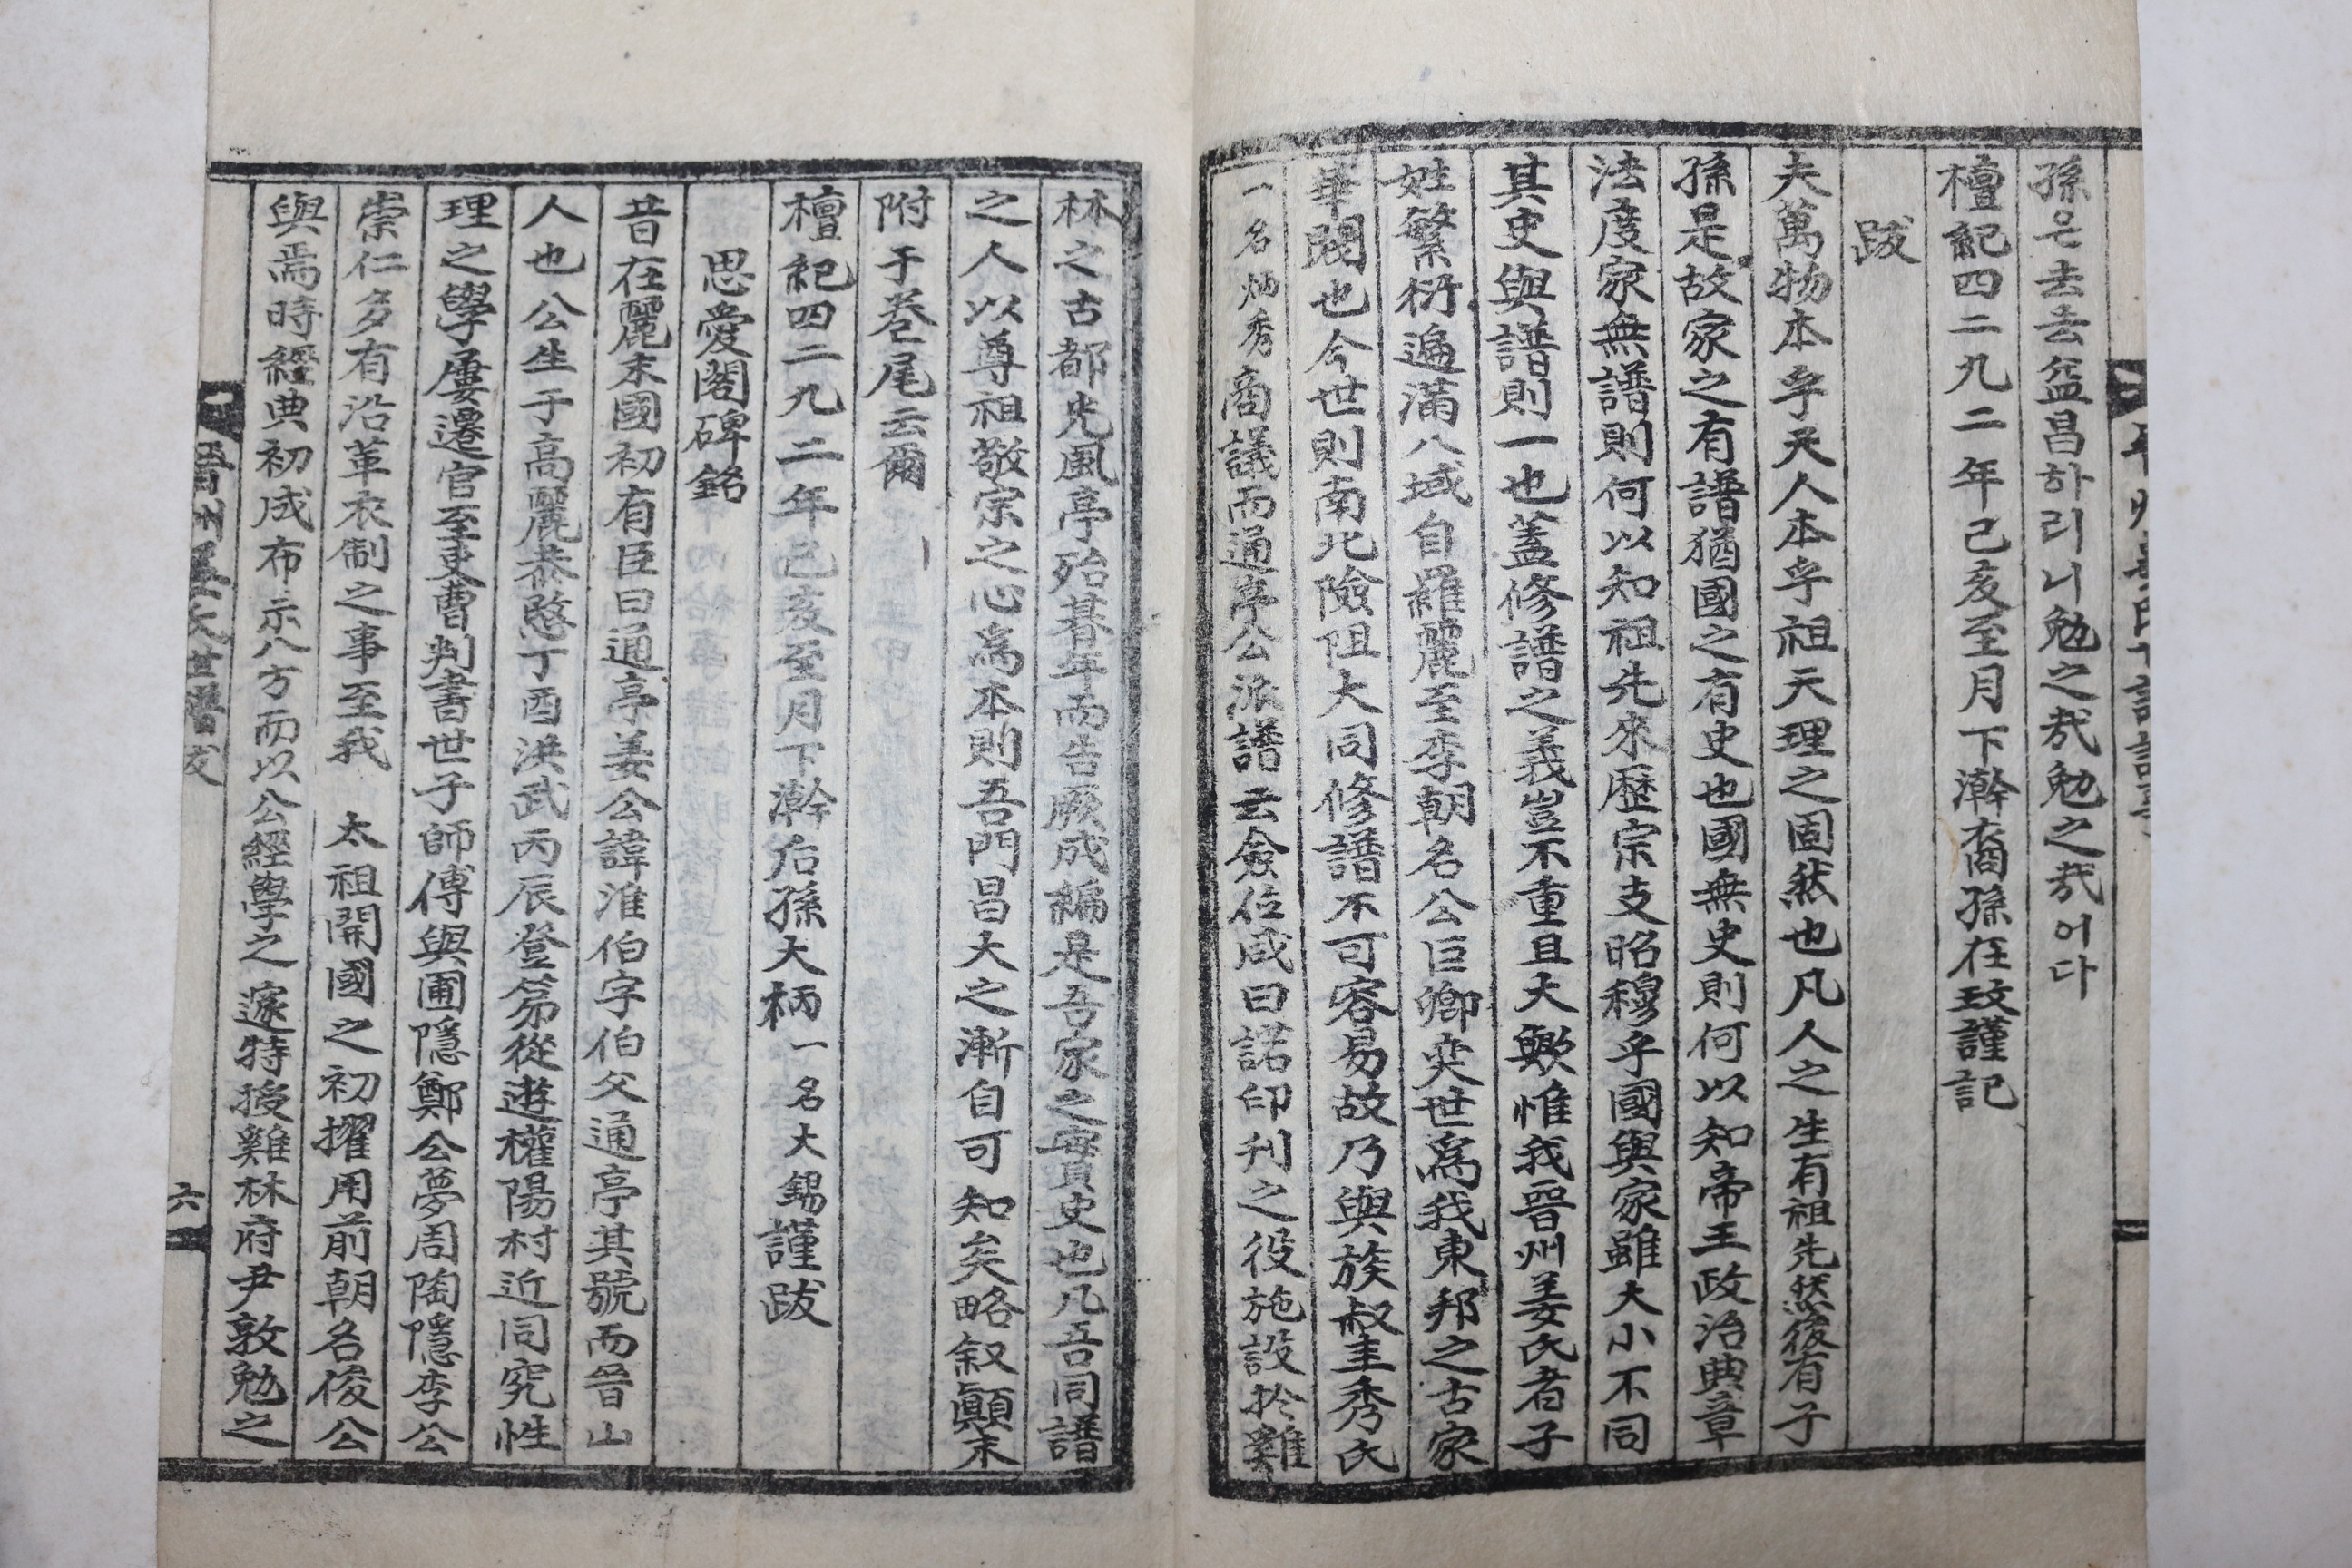 孫은去去益昌하리니勉之哉勉之哉어다
檀紀四二九二年己亥至月下澣裔孫在玟謹記
跋
夫萬物本乎天人本乎祖天理之固然也凡人之生有祖先然後有子
孫是故家之有譜猶國之有史也國無史則何以知帝王政治典章
法度家無譜則何以知祖先來歷宗支昭穆乎國與家雖大小不同
其史與譜則一也蓋修譜之義豈不重且大歟惟我晉州姜氏者子
姓繁衍遍滿八域自羅麗至李朝名公巨卿奕世爲我東邦之古家
華閥也今世則南北險阻大同修譜不可容易故乃與族叔圭秀氏
一名炳秀商議而通亭公派譜云僉位咸曰諾印刋之役施設於雞
林之古都光風亭殆朞年而告厥成編是吾家之實史也凡吾同譜
之人以尊祖敬宗之心爲本則吾門昌大之漸自可知矣略叙顚末
附于卷尾云爾
檀紀四二九二年己亥至月下澣后孫大柄一名大錫謹跋
思愛閣碑銘
昔在麗末國初有臣曰通亭姜公諱淮伯字伯父通亭其號而晉山
人也公生于高麗恭愍丁酉洪武丙辰登第從遊權陽村近同究性
理之學屢遷官至吏曹判書世子師傅與圃隱鄭公夢周陶隱李公
崇仁多有沿革衣制之事至我 太祖開國之初擢用前朝名俊公
與焉時經典初成布示八方而以公經學之邃特授雞林府尹敦勉之
晉州姜氏世譜跋
六